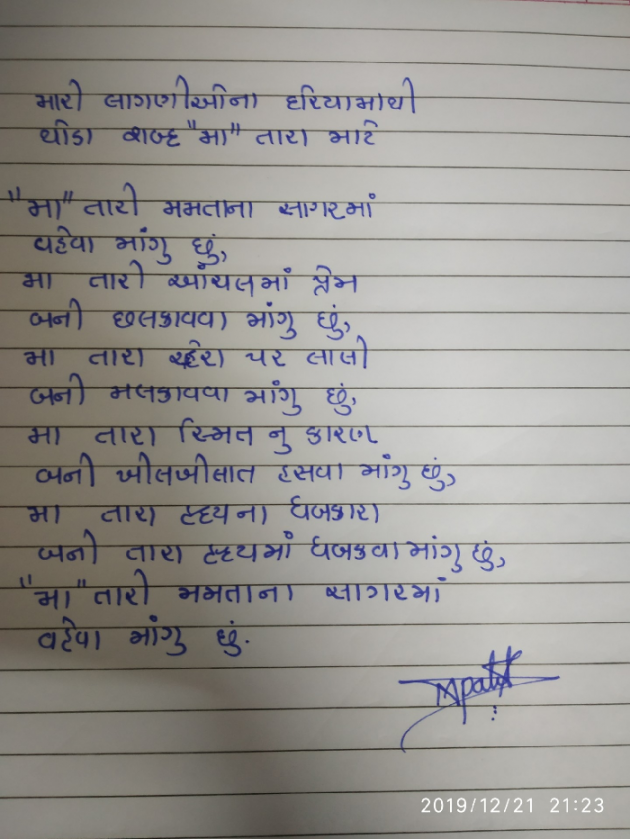 મારી લાગણીઓના દરિયામાથી
થોડા શબ્દ "મા" તારા માટે
"મા" તારી મમતાના સાગરમાં
વહેવા માંગુ છું,
મા તારી આંચલમાં પ્રેમ
બની છલકાવવા માંગુ છું,
મા તારા ચહેરા પર લાલી
બની મલકાવવા માંગુ છું,
મા તારા સ્મિત નુ કારણ
બની ખીલખીલાત હસવા માંગુ છું,
મા તારા હ્દયના ધબકારા
બની તારા હ્દયમાં ધબકવા માંગુ છું,
"મા" તારી મમતાના સાગરમાં
વહેવા માંગુ છું.
Mpatel
2019/12/21 21:23